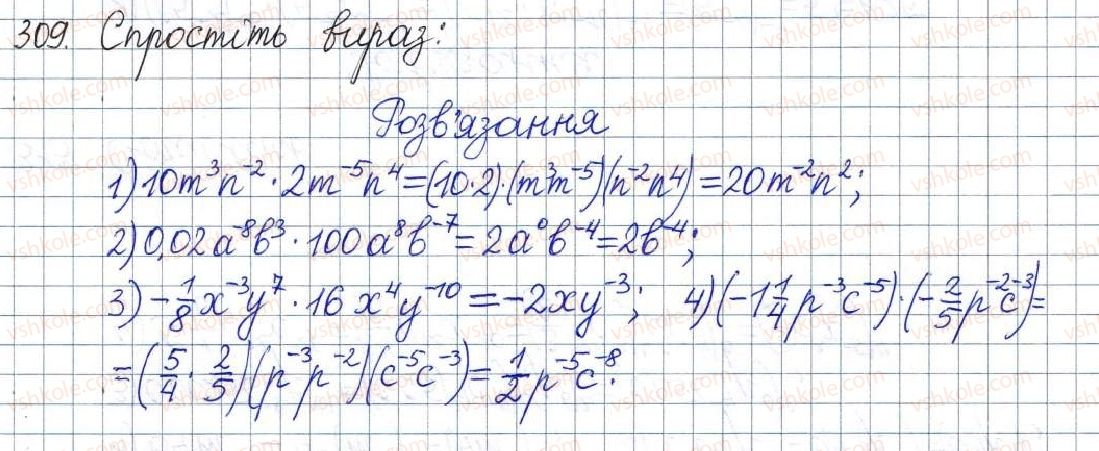 309. Спростіть вираз:
Розв'язання
1) 10m³n⁻² · 2m⁻⁵n⁴ = (10·2)·(m³m⁻⁵)(n⁻²n⁴) = 20m⁻²n²;
2) 0,02a⁻⁸b³ · 100a⁸b⁻⁷ = 2a⁰b⁻⁴ = 2b⁻⁴;
3) -1/8x⁻³y⁷ · 16x⁴y⁻¹⁰ = -2xy⁻³; 4) (-1 1/4 p⁻³c⁻⁵) · (-2/5 p⁻²c⁻³) =
= (5/4 · 2/5)(p⁻³p⁻²)(c⁻⁵c⁻³) = 1/2 p⁻⁵c⁻⁸.